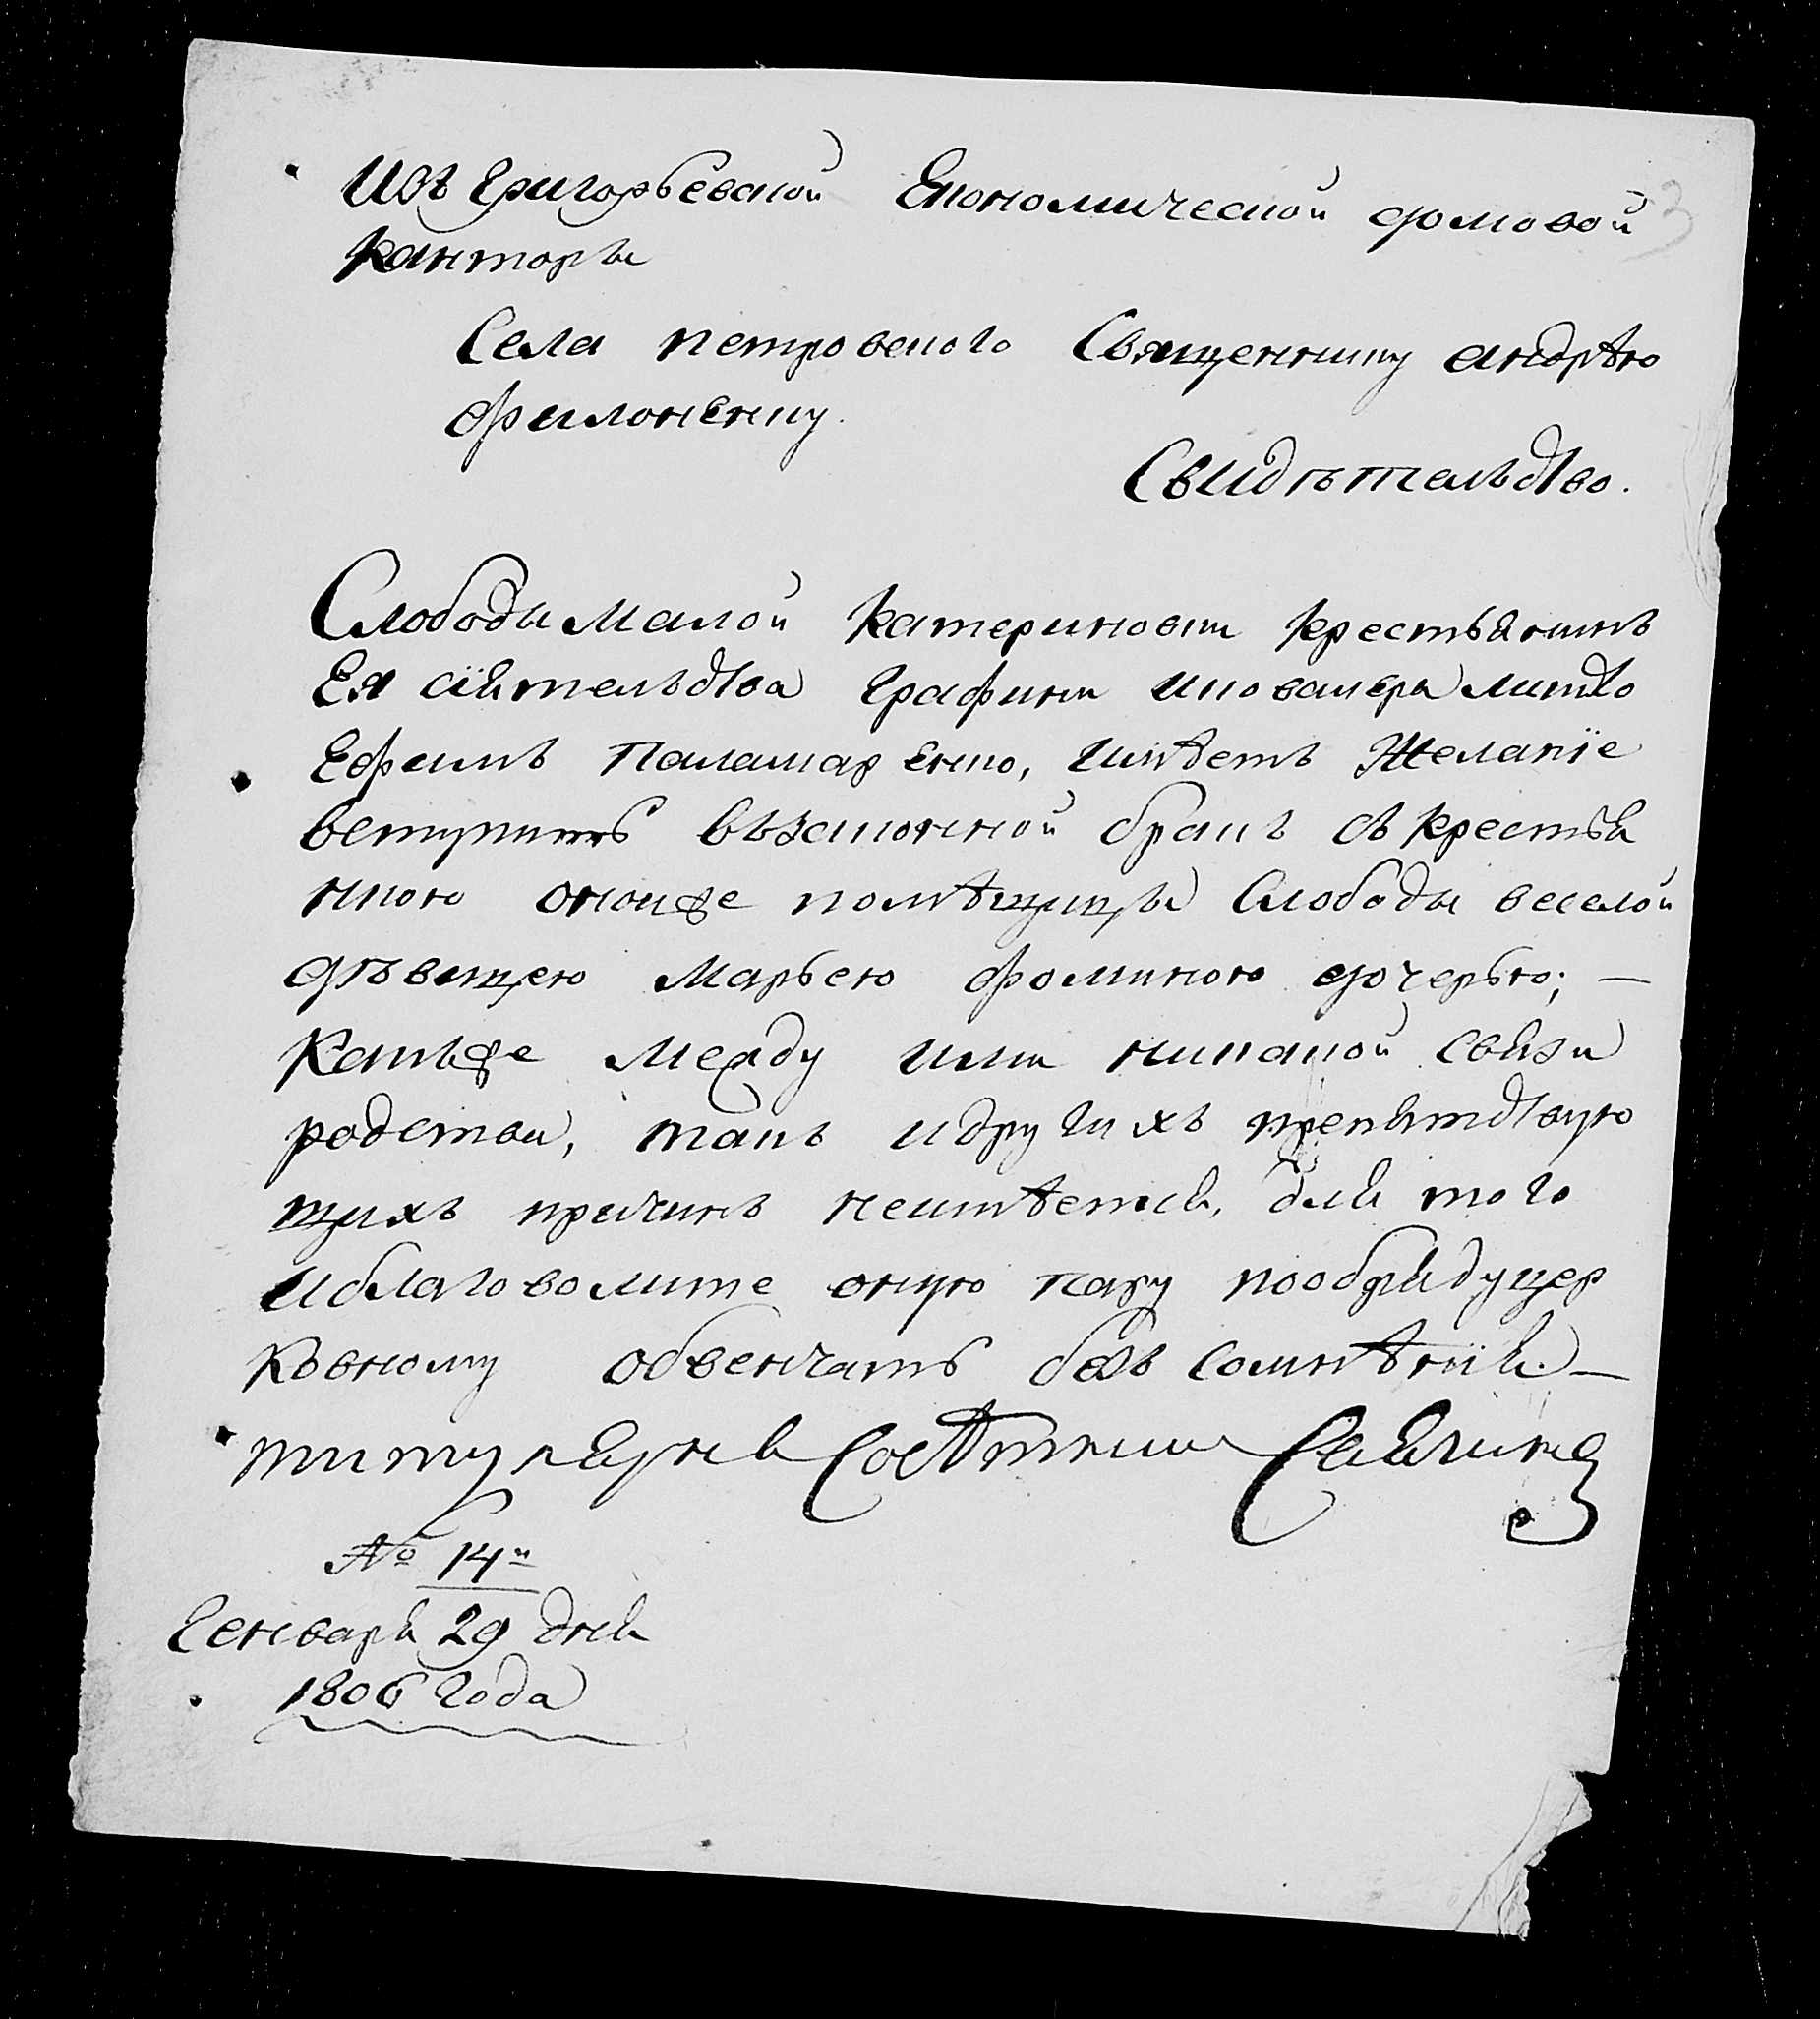 Изъ Григорьевской Економической домовой
канторы
Села петровского Священнику андрѣю
филоненку.
Свидѣтельство.
Слободы Малой Катериновки крестьянинъ
Ея сіятельства Графини и кавалера литто
Ефимъ паламаренко, имѣетъ Желаніе
вступить взаконной бракъ съ крестья
нкою оной же помѣщицы Слободы веселой
дѣвицею марьею фоминою дочерью; —
Какъ же между ими никакой связи
родства, такъ идругихъ препятствую
щихъ причинъ неимѣетсья, для того
иблаговолите оную пару пообряду цер
ковному обвенчать безъ сомнѣнія. —
титулярнъ Совѣтникъ
№ 14й
Генваря 29 дня
1806 года
3